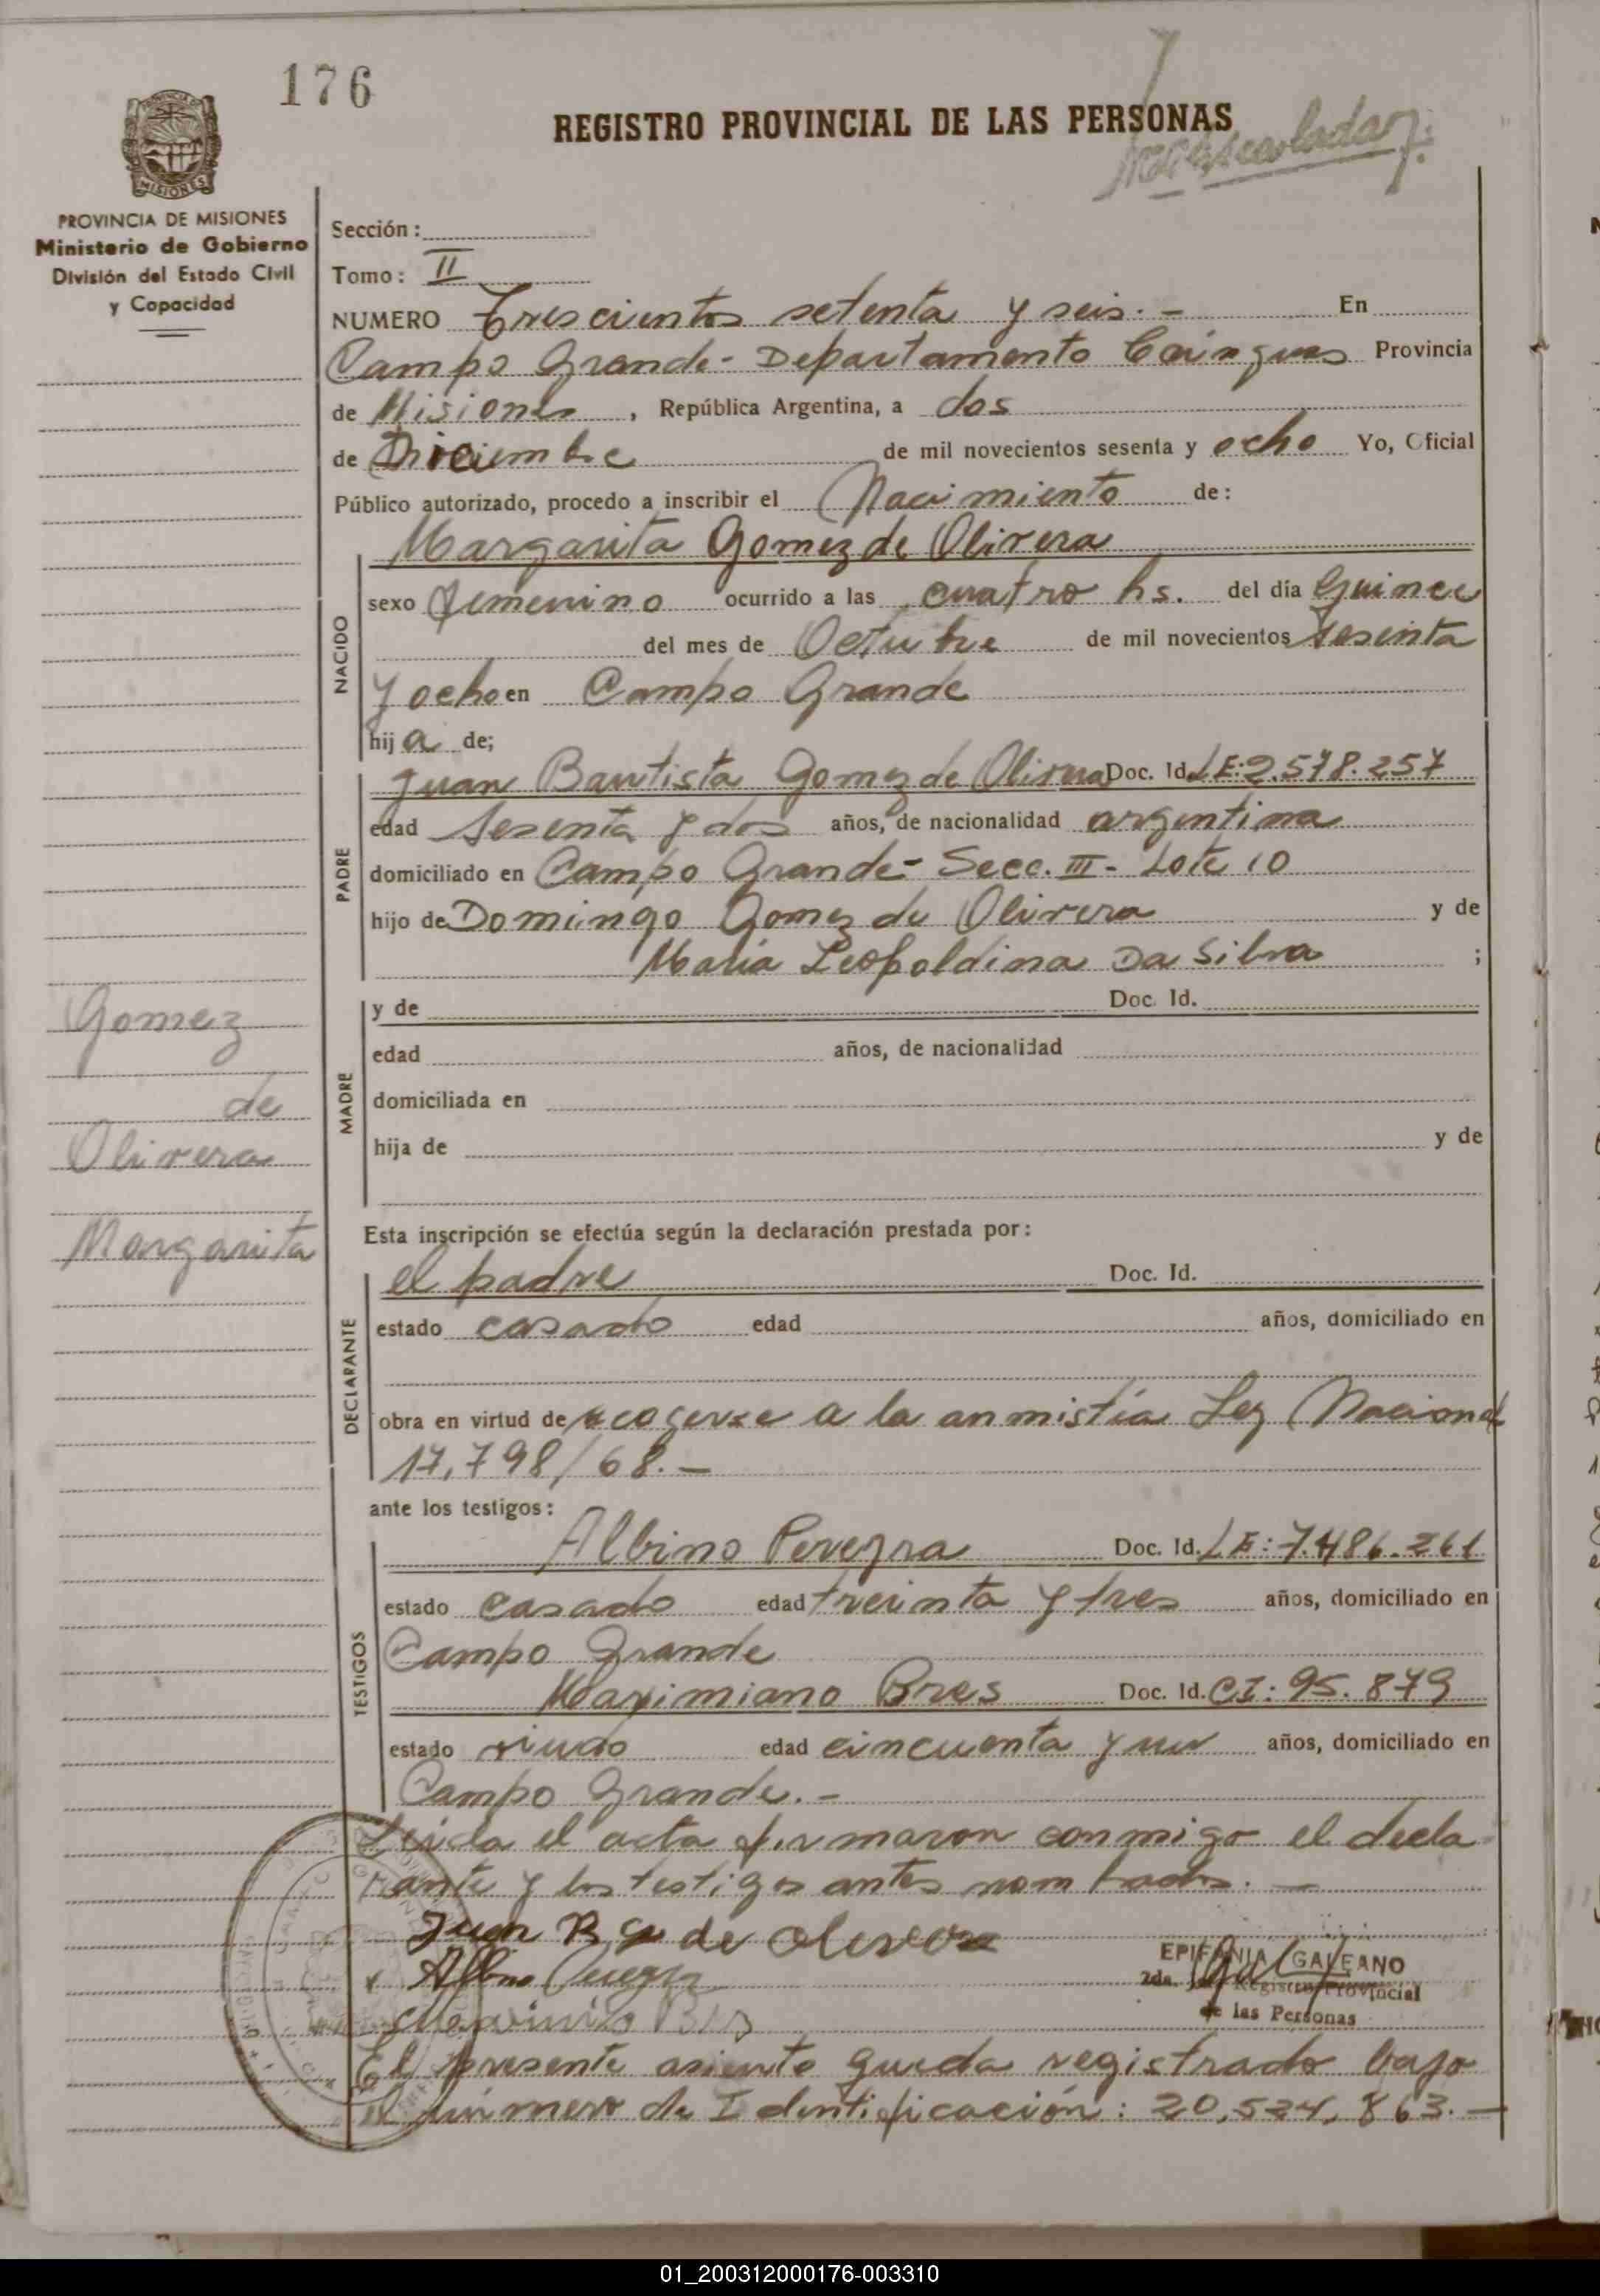 176
REGISTRO PROVINCIAL DE LAS PERSONAS
PROVINCIA DE MISIONES
Ministerio de Gobierno
División del Estado Civil
y Capacidad
Sección:
Tomo: II
NUMERO Trescientos setenta y seis.- En
Campo Grande- Departamento Cainguas Provincia
de Misiones, República Argentina, a dos
de Diciembre de mil novecientos sesenta y ocho Yo, Oficial
Público autorizado, procedo a inscribir el Nacimiento de:
Margarita Gomez de Olivera
NACIDO
sexo femenino ocurrido a las cuatro hs. del día Quince
del mes de Octubre de mil novecientos sesenta
y ocho en Campo Grande
hija de;
PADRE
Juan Bautista Gomez de Olivera Doc. Id. LE:2.578.257
edad sesenta y dos años, de nacionalidad argentina
domiciliado en Campo Grande- Secc. III- Lote 10
hijo de Domingo Gomez de Olivera y de
Maria Leopoldina Da Silva ;
MADRE
y de Doc. Id.
edad años, de nacionalidad
domiciliada en
hija de y de
Gomez
de
Olivera
Margarita
Esta inscripción se efectúa según la declaración prestada por:
DECLARANTE
el padre Doc. Id.
estado casado edad años, domiciliado en
obra en virtud de acogerse a la anmistía Ley Nacional
17,798/68.-
ante los testigos:
TESTIGOS
Albino Pereyra Doc. Id. LE: 7.486.261
estado casado edad treinta y tres años, domiciliado en
Campo Grande
Maximiano Bres Doc. Id. CI: 95.879
estado viudo edad cincuenta y un años, domiciliado en
Campo Grande.-
Leida el acta firmaron conmigo el decla
rante y los testigos antes nombrados.-
Juan B G de Olivera
Albino Pereyra
EPIFANIA GALEANO
Registro Provincial
de las Personas
El presente asiento queda registrado bajo
el número de Identificación: 20,524,863.-
01_200312000176-003310